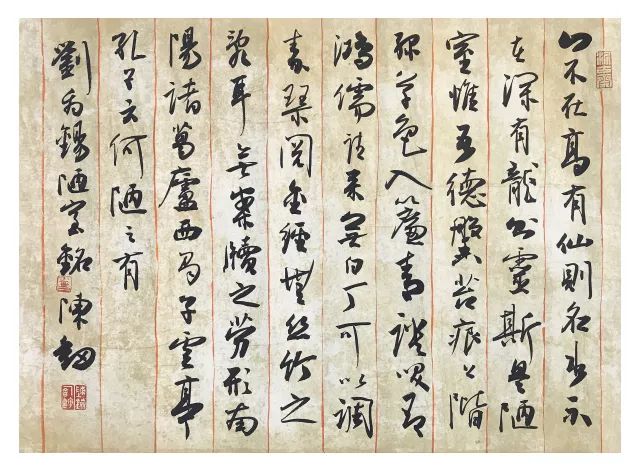 山不在高有仙則名水不
在深有龍則靈斯是陋
室惟吾德馨苔痕上階
綠草色入簾青談笑有
鴻儒往來無白丁可以調
素琴閱金經無絲竹之
亂耳無案牘之勞形南
陽諸葛廬西蜀子雲亭
孔子云何陋之有
劉禹錫陋室銘 陳